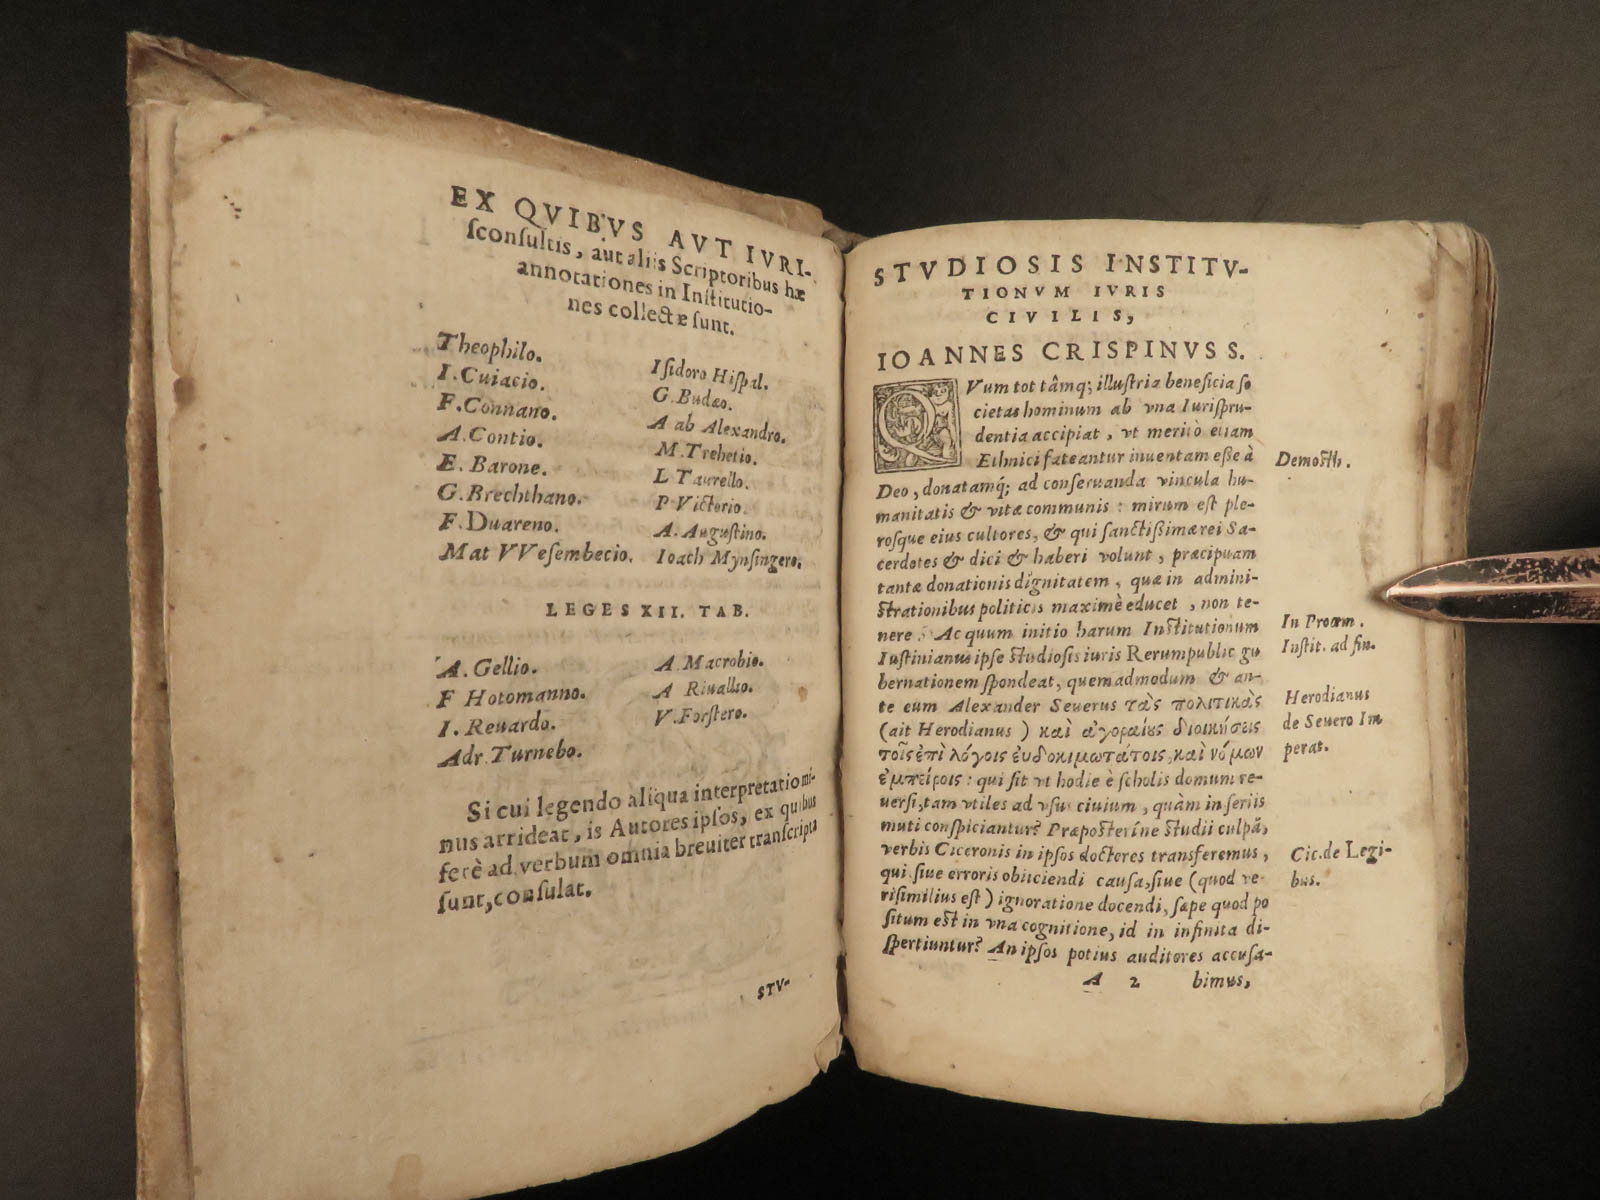 EX QVIBVS AVT IVRI-
ſconſultis, aut aliis Scriptoribus hæ
annotationes in Inſtitutio-
nes collectæ ſunt.
Theophilo.
I. Cuiacio.
F. Connano.
A. Contio.
E. Barone.
G. Brechthano.
F. Duareno.
Mat VVeſembecio.
Iſidoro Hiſpal.
G. Budæo.
A ab Alexandro.
M. Trehetio.
L Taurello.
P Victorio.
A. Auguſtino.
Ioach Mynſingero.
LEGES XII. TAB.
A. Gellio.
F Hotomanno.
I. Reuardo.
Adr. Turnebo.
A Macrobio.
A Riuallio.
V. Forſtero.
Si cui legendo aliqua interpretatio mi-
nus arrideat, is Autores ipſos, ex quibus
ferè ad verbum omnia breuiter tranſcripta
ſunt, conſulat.
STV-
STVDIOSIS INSTITV-
TIONVM IVRIS
CIVILIS,
IOANNES CRISPINVS S.
QVum tot tâmq; illuſtria beneficia ſo
cietas hominum ab vna Iuriſpru-
dentia accipiat, vt meritò etiam
Ethnici fateantur inuentam eſſe à
Deo, donatamq́; ad conſeruanda vincula hu-
manitatis & vitæ communis : mirum est ple-
roſque eius cultores, & qui ſanctißimæ rei Sa-
cerdotes & dici & haberi volunt, præcipuam
tantæ donationis dignitatem, quæ in admini-
strationibus politicis maximè educet, non te-
nere. Ac quum initio harum Inſtitutionum
Iuſtinianus ipſe studioſis iuris Rerumpublic gu
bernationem ſpondeat, quemadmodum & an-
te eum Alexander Seuerus τὰς πολιτικὰς
(ait Herodianus) καὶ ἀγοραίους διοικήσεις
τοῖς ἐπὶ λόγοις εὐδοκιμωτάτοις, καὶ νόμων
ἐμπείροις : qui fit vt hodie è ſcholis domum re-
uerſi, tam vtiles ad vſus ciuium, quàm in ſeriis
muti conſpiciantur? Præposterίne studii culpã,
verbis Ciceronis in ipſos doctores transferemus,
qui ſiue erroris obiiciendi cauſa, ſiue (quod ve-
riſimilius eſt) ignoratione docendi, ſæpe quod po
ſitum est in vna cognitione, id in infinita di-
ſpertiuntur? An ipſos potius auditores accuſa-
A 2 bimus,
Demosth.
In Proœm.
Inſtit. ad fin.
Herodianus
de Seuero Im
perat.
Cic. de Legi-
bus.